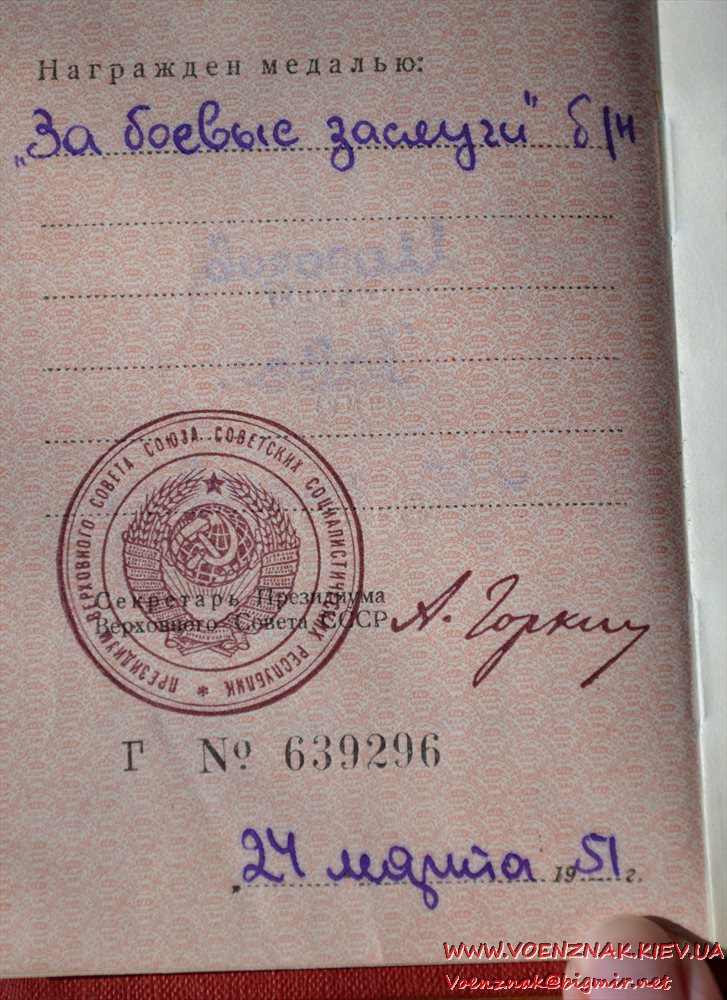 Награжден медалью:
„За боевые заслуги" б/н
ПРЕЗИДИУМ ВЕРХОВНОГО СОВЕТА СОЮЗА СОВЕТСКИХ СОЦИАЛИСТИЧЕСКИХ РЕСПУБЛИК *
Секретарь Президиума
Верховного Совета СССР
А. Горкин
Г № 639296
„24 марта 1951 г.
WWW.VOENZNAK.KIEV.UA
Voenznak@bigmir.net